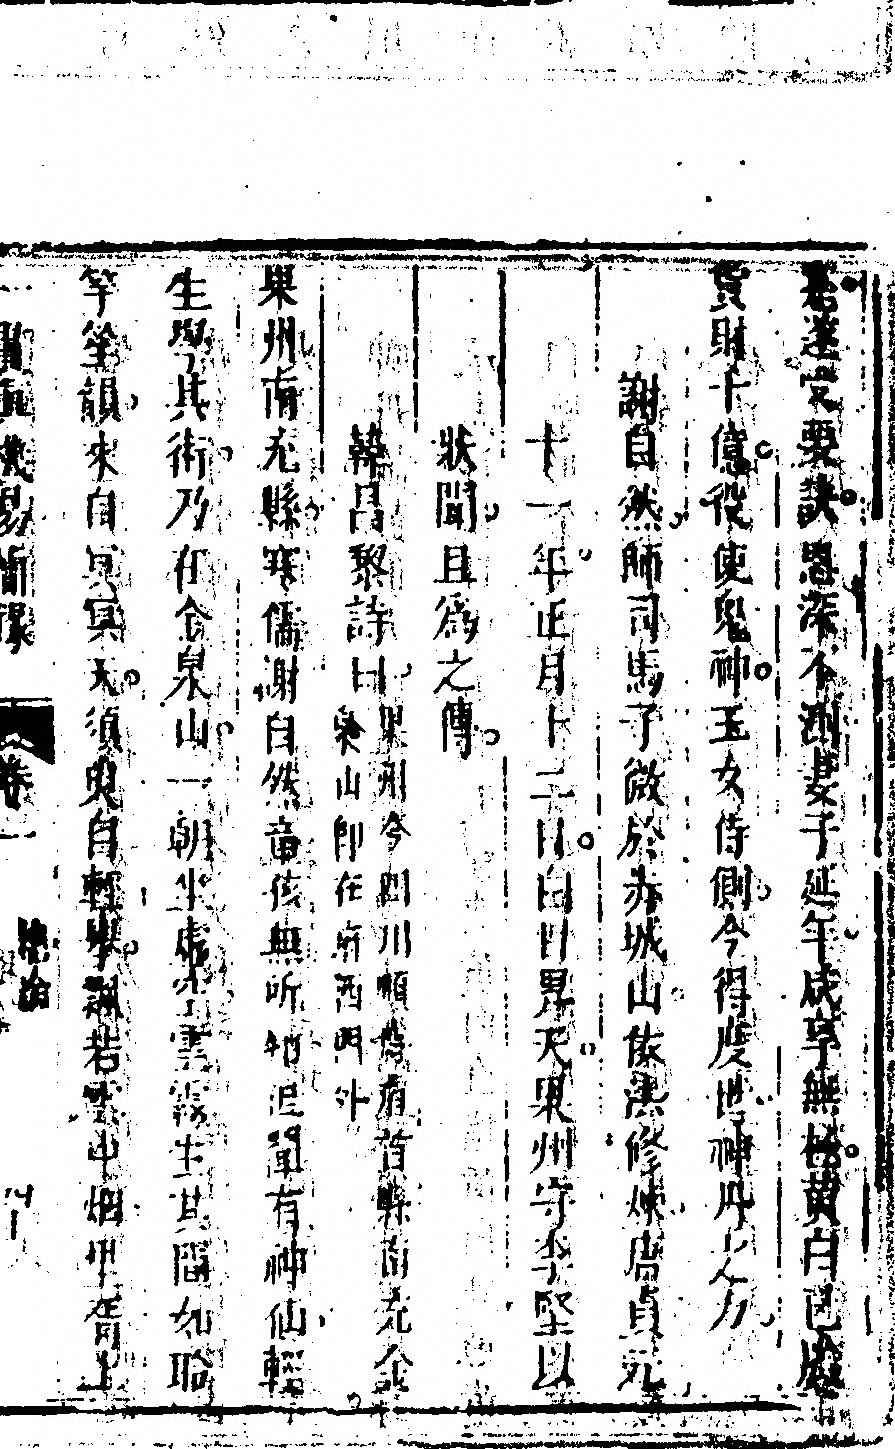 遂受要訣恩深不測妻子延年咸享無極黃白已成
貨財千億役使鬼神玉女侍側今得度世神丹之力
謝自然師司馬子微於赤城山依法修煉唐貞元
十一年正月十二日白日昇天果州守李堅以
狀聞且爲之傳
韓昌黎詩曰
果州今四川順慶府首縣南充金
泉山即在府西門外
果州南充縣寒儒謝自然童孩無所知但聞有神仙輕
生學其術乃在金泉山一朝坐虛空雲霧生其間如聆
竽笙韻來自冥冥天須臾自輕舉飄若雲中烟里胥上
卷一